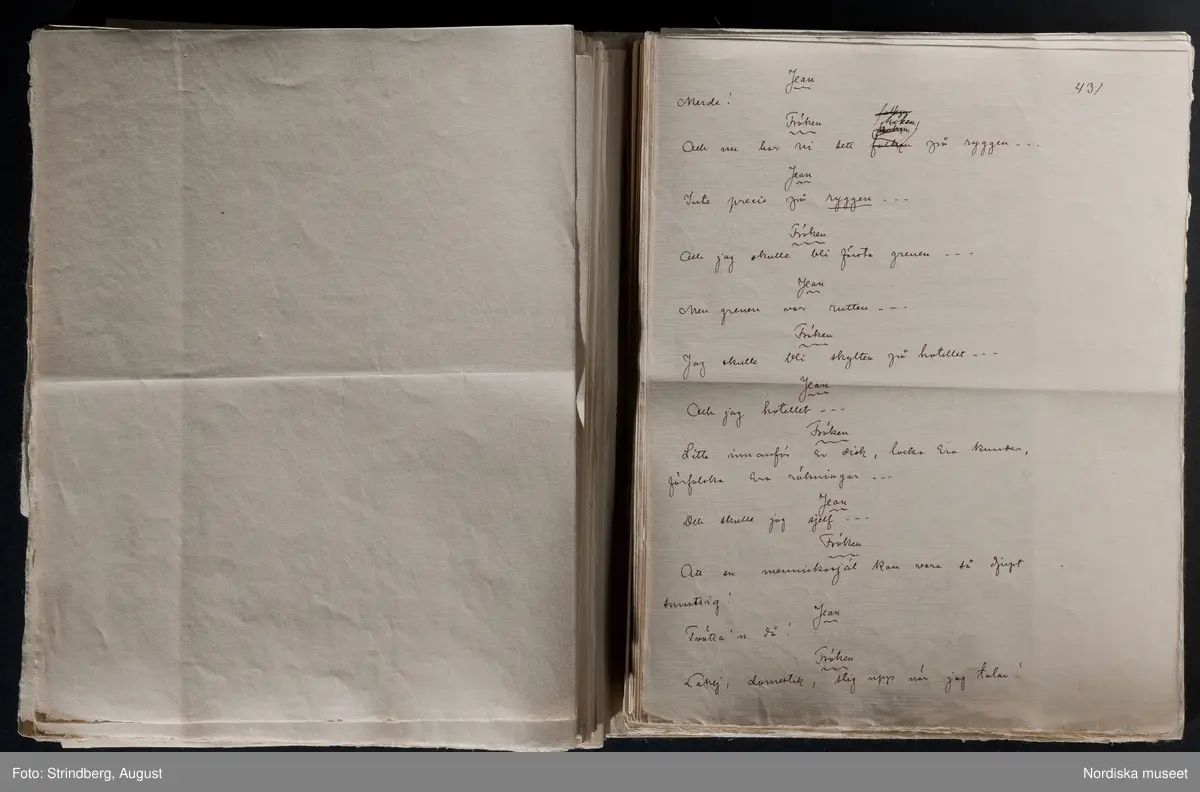 43/
Jean
Merde!
Fröken
Och nu har ni sett höken på ryggen ---
Jean
Inte precis på ryggen ---
Fröken
Och jag skulle bli första grenen ---
Jean
Men grenen var rutten ---
Fröken
Jag skulle bli skylten på hotellet ---
Jean
Och jag hotellet ---
Fröken
Sitta innanför Er disk, locka Era kunder,
förfalska Era räkningar ---
Jean
Det skulle jag sjelf ---
Fröken
Att en menniskosjäl kan vara så djupt
smutsig!
Jean
Tvätta'n då!
Fröken
Lakej, domestik, stig upp när jag talar!
Foto: Strindberg, August
Nordiska museet